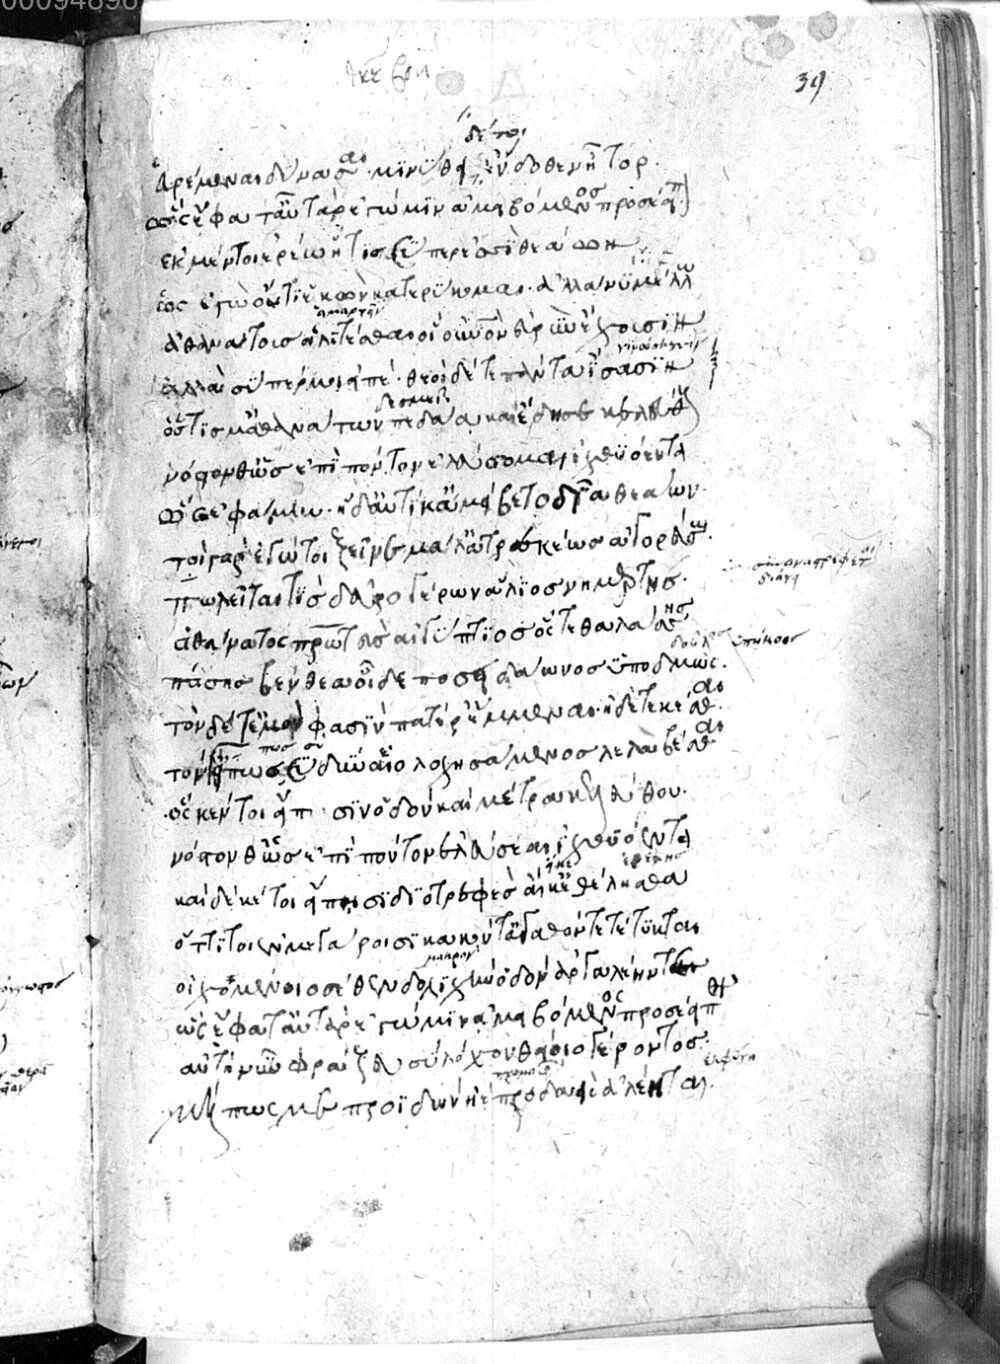 39
δέ τοι
εὑρέμεναι δύνασαι· μινύθει ἔνδοθεν ἦτορ.
ὡς ἔφατ' αὐτὰρ ἐγώ μιν ἀμειβόμενος προσέειπ
ἐκ μέν τοι ἐρέω ἥτις σύ περ ἐσσὶ θεάων
ὡς ἐγὼ οὔτι ἑκὼν κατερύκομαι. ἀλλά νυ μέλλω
ἁμαρτεῖν
ἀθανάτοισ ἀλιτέσθαι οἱ οὐρανὸν εὐρὺν ἔχουσιν
γινώσκουσιν
ἀλλὰ σύ πέρ μοι εἰπέ· θεοὶ δέ τε πάντα ἴσασιν
δεσμεῖ
ὅστις μ' ἀθανάτων πεδάα καὶ ἔδησε κελεύθου
νόστον θ' ὡς ἐπὶ πόντον ἐλεύσομαι ἰχθυόεντα
ὡς ἐφάμην· ἡ δ' αὐτίκ' ἀμείβετο δῖα θεάων·
τοὶ γὰρ ἐγώ τοι ξεῖνε μάλ' ἀτρεκέως ἀγορεύσω.
συναναστρέφεται
πωλεῖταί τις δεῦρο γέρων ἅλιος νημερτής.
ἀθάνατος πρωτεὺς αἰγύπτιος ὅς τε θαλάσσης
δοῦλος ὑπήκοος
πάσης βένθεα οἶδε ποσειδάωνος ὑποδμώς.
τὸν δέ τ' ἐμὸν φασὶν πατέρ' ἔμμεναι· ἠδὲ τεκέσθαι.
τόν γ' εἴπως σὺ δύναιο λοχησάμενος λελαβέσθαι
ὅς κέν τοι εἴπησιν ὁδὸν καὶ μέτρα κελεύθου.
νόστον θ' ὡς ἐπὶ πόντον ἐλεύσεαι ἰχθυόεντα
καὶ δέ κέ τοι εἴπησι διοτρεφὲς αἴ κ' ἐθέλησθα
ὅττι τοι ἐν μεγάροισι κακόν τ' ἀγαθόν τε τέτυκται
μακρὰν
οἰχομένοιο σέθεν δολιχὴν ὁδὸν ἀργαλέην τε
ὡς ἔφατ' αὐτὰρ ἐγώ μιν ἀμειβόμενος προσέειπ
αὐτὴ νῦν φράζευ σὺ λόχον θείοιο γέροντος.
ἐκφύγη
μή πως με προϊδὼν ἠὲ προδαεὶς ἀλέηται.